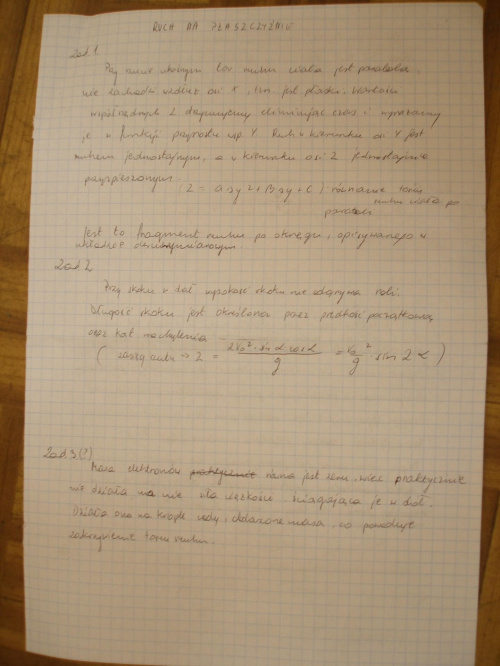 RUCH NA PŁASZCZYŹNIE
Zad. 1
Przy rzucie ukośnym tor ruchu ciała jest parabolą,
nie zachodzi wzdłuż osi X, tzn. jest płaski. Wartości
współrzędnych Z otrzymujemy eliminując czas i wyrażamy
je w funkcji przyrostu wsp. Y. Ruch w kierunku osi Y jest
ruchem jednostajnym, a w kierunku osi Z jednostajnie
przyspieszonym.
(Z = a·sy2 + B·sy + C) - równanie toru
ruchu ciała po
paraboli
Jest to fragment ruchu po okręgu, opisywanego w
układzie
Zad. 2
Przy skoku w dal wysokość skoku nie odgrywa roli.
Długość skoku jest określona przez prędkość początkową
oraz kąt nachylenia
( zasięg rzutu → Z = 2V₀² · sin α cos α / g = V₀² / g sin 2 α )
Zad. 3 (?)
Masa elektronów praktycznie równa jest zeru, więc praktycznie
nie działa na nie siła ciężkości ściągająca je w dół.
Działa ona na krople wody, obdarzone masą, co powoduje
zakrzywienie toru ruchu.